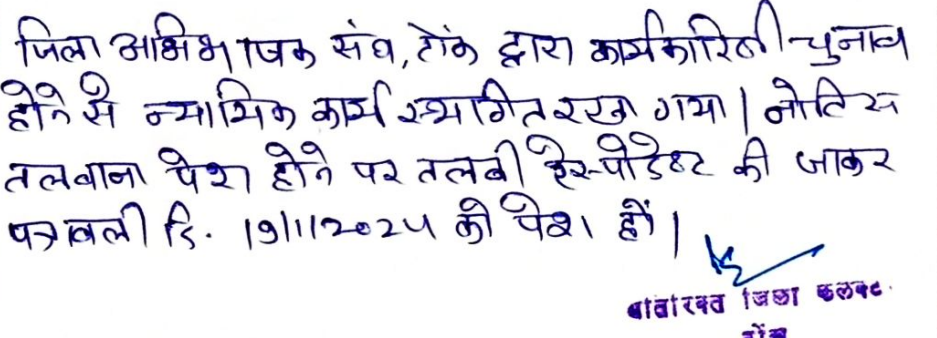 जिला अभिभाषक संघ, टोंक द्वारा कार्यकारिणी चुनाव
होने से न्यायिक कार्य स्थगित रखा गया। नोटिस
तलबाना पेश होने पर तलबी रेस्पोडेण्ट की जाकर
पत्रावली दि. 19/11/2024 को पेश हों।
अतिरिक्त जिला कलक्टर
टोंक